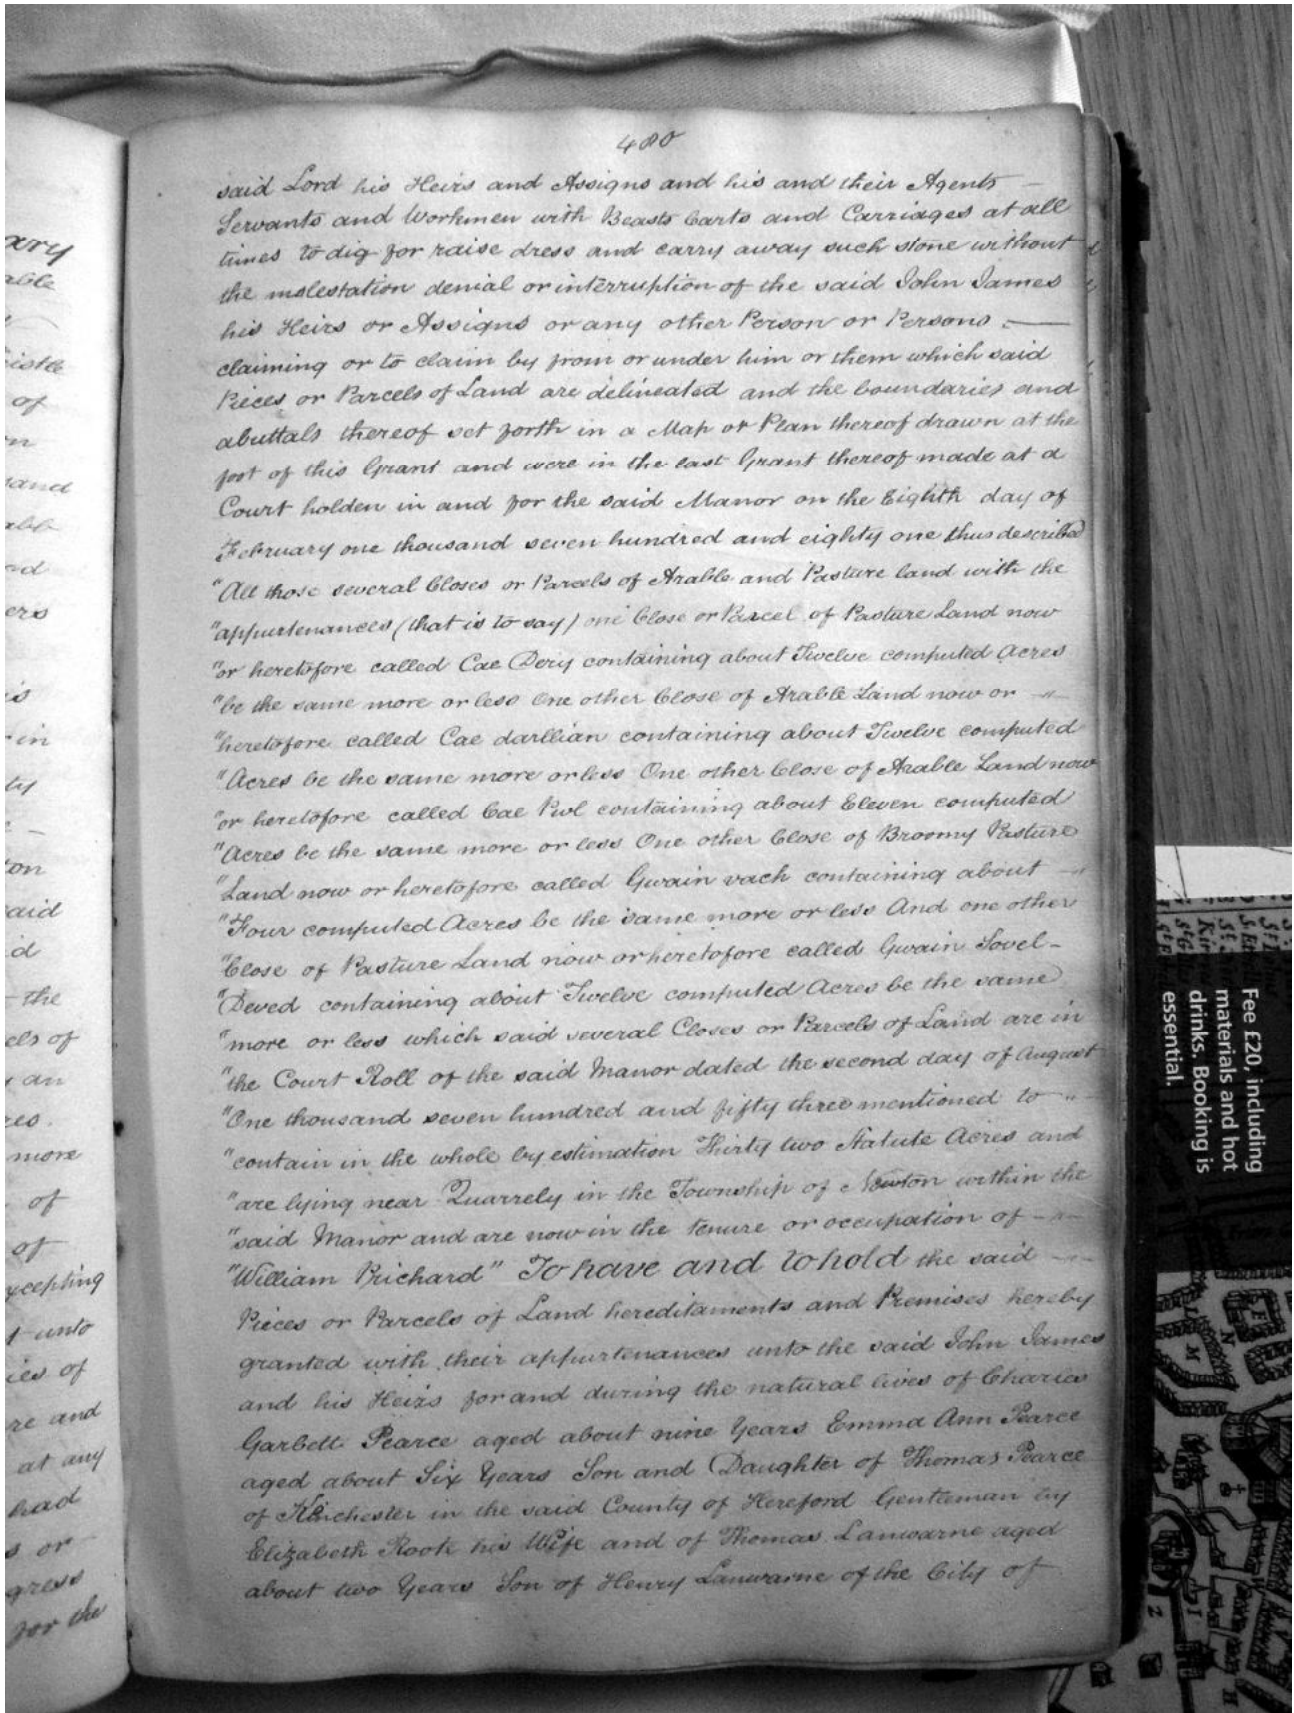 480
said Lord his Heirs and Assigns and his and their Agents —
Servants and Workmen with Beasts Carts and Carriages at all
times to dig for raise dress and carry away such stone without
the molestation denial or interruption of the said John James
his Heirs or Assigns or any other Person or Persons. —
claiming or to claim by from or under him or them which said
Pieces or Parcels of Land are delineated and the boundaries and
abuttals thereof set forth in a Map or Plan thereof drawn at the
foot of this Grant and were in the last Grant thereof made at a
Court holden in and for the said Manor on the Eighth day of
February one thousand seven hundred and eighty one thus described
"All those several Closes or Parcels of Arable and Pasture land with the
"appurtenances (that is to say) one Close or Parcel of Pasture Land now
"or heretofore called Cae Dery containing about Twelve computed Acres
"be the same more or less One other Close of Arable Land now or —"—
"heretofore called Cae darllian containing about Twelve computed
"Acres be the same more or less One other Close of Arable Land now
"or heretofore called Cae Pwl containing about Eleven computed
"Acres be the same more or less One other Close of Broomy Pasture
"Land now or heretofore called Gwain vach containing about —"
"Four computed Acres be the same more or less And one other
"Close of Pasture Land now or heretofore called Gwain Sovel-
"Deved containing about Twelve computed Acres be the same
"more or less which said several Closes or Parcels of Land are in
"the Court Roll of the said Manor dated the second day of August
"One thousand seven hundred and fifty three mentioned to "—
"contain in the whole by estimation Thirty two Statute Acres and
"are lying near Quarrely in the Township of Newton within the
"said Manor and are now in the tenure or occupation of —"—
"William Prichard" To have and to hold the said —
Pieces or Parcels of Land hereditaments and Premises hereby
granted with their appurtenances unto the said John James
and his Heirs for and during the natural lives of Charles
Garbett Pearce aged about nine Years Emma Ann Pearce
aged about Six Years Son and Daughter of Thomas Pearce
of Kenchester in the said County of Hereford Gentleman by
Elizabeth Rooke his Wife and of Thomas Lanwarne aged
about two Years Son of Henry Lanwarne of the City of
ary
able
of
and
ers
is
in
ty
on
said
id
the
els of
an
more
of
of
excepting
unto
ies of
re and
at any
had
s or
gress
for the
Fee £20, including
materials and hot
drinks. Booking is
essential.